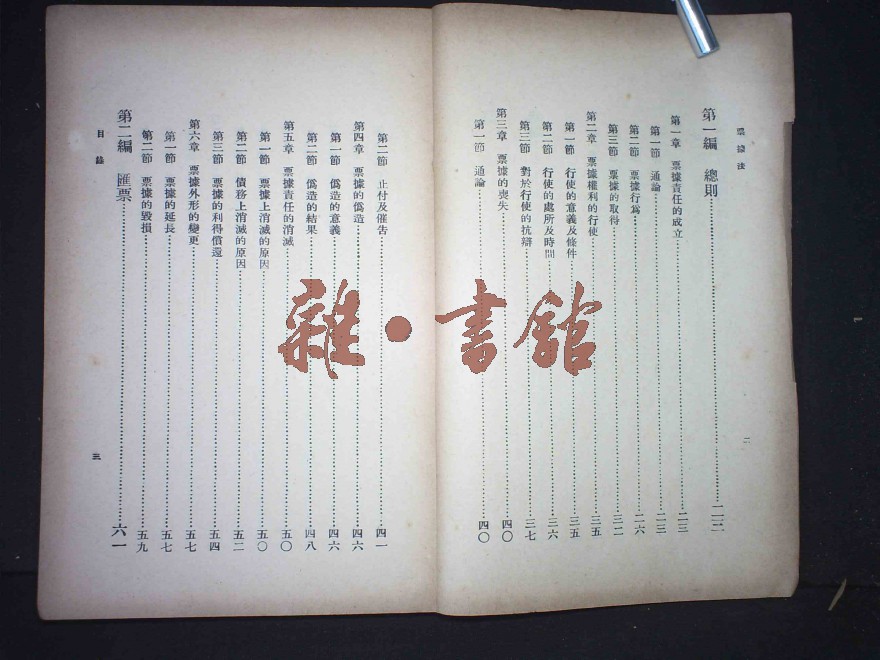 票據法
二
第一編 總則 二三
第一章 票據責任的成立 二三
第一節 通論 二三
第二節 票據行爲 二六
第三節 票據的取得 三二
第二章 票據權利的行使 三五
第一節 行使的意義及條件 三五
第二節 行使的處所及時間 三六
第三節 對於行使的抗辯 三七
第三章 票據的喪失 四〇
第一節 通論 四〇
第二節 止付及催告 四一
第四章 票據的僞造 四六
第一節 僞造的意義 四六
第二節 僞造的結果 四八
第五章 票據責任的消滅 五〇
第一節 票據上消滅的原因 五〇
第二節 債務上消滅的原因 五二
第三節 票據的利得償還 五四
第六章 票據外形的變更 五七
第一節 票據的延長 五七
第二節 票據的毀損 五九
第二編 匯票 六一
目錄
三
雜·書館